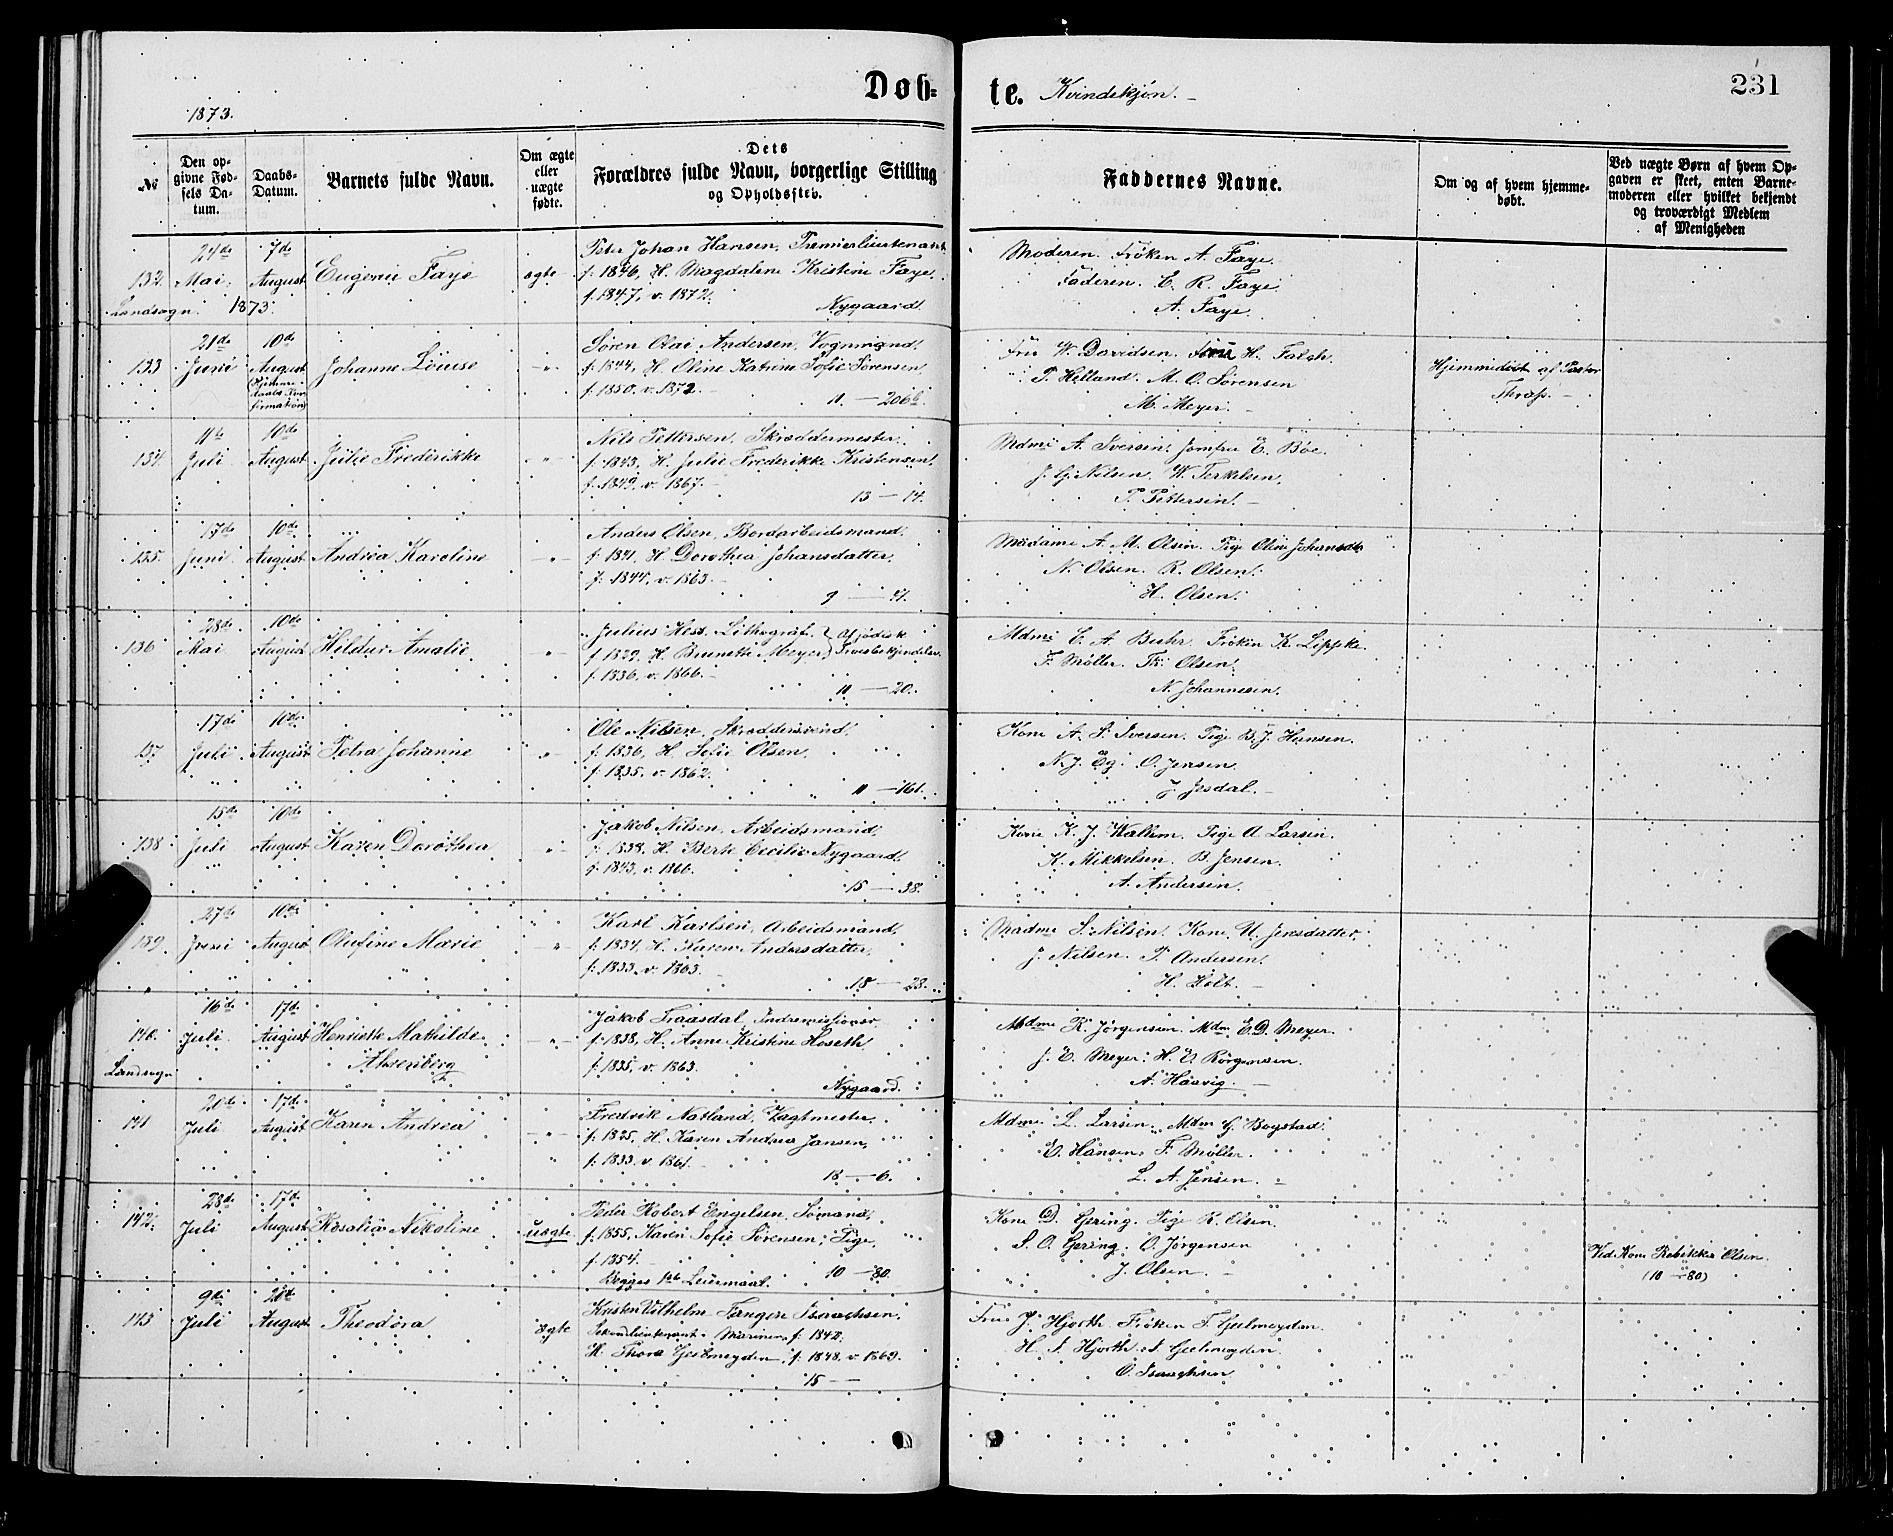 Døb- te. Kvindekjøn. 231
1873.
No
Den opgivne Fødsels Datum.
Daabs-Datum.
Barnets fulde Navn.
Om ægte eller uægte fødte.
Dets Forældres fulde Navn, borgerlige Stilling og Opholdssted.
Faddernes Navne.
Om og af hvem hjemmedøbt.
Ved uægte Børn af hvem Opgaven er skeet, enten Barnemoderen eller hvilket bekjendt og troværdigt Medlem af Menigheden
24de 7de Peter Johan Hansen, Premierlieutenant
132. Mai August Eugenie Faye ægte f. 1846, H. Magdalene Kristine Faye,
Landsogn. 1873. f. 1847, v. 1872. Nygaard
Moderen. Frøken A. Faye.
Faderen. E. R. Faye
A. Faye.
21de 10de Søren Olai Andersen, Vognmand.
133 Juni August Johanne Louise f. 1844, H. Oline Katrine Sofie Sørensen,
f. 1850, v. 1872. 11 – 206b.
Fru W. Davidsen. H. Falch.
P. Helland. M. O. Sørensen
M. Meyer.
Hjemmedøbt af Pastor
11te 10de Nils Pettersen, Skræddermester.
134. Juli August Julie Frederikke f. 1843, H. Julie Frederikke Kristensen,
f. 1849, v. 1867. 13 – 14.
Mdme A. Iversen. Jomfru E. Bøe.
J. G. Nilsen. W. Terkelsen.
P. Pettersen.
17de 10de Anders Olsen, Bordarbeidsmand.
135. Juni August Andrea Karoline f. 1841, H. Dorothea Johansdatter,
f. 1844, v. 1863.
Madame A. M. Olsen. Pige Oline Johansdtr
N. Olsen. R. Olsen.
H. Olsen.
28de 10de Julius Hess. Lithograf.
136 Mai August Hildur Amalie f. 1829, H. Brunette Meyer,
f. 1836, v. 1866. 11 – 20.
Mdme E. A. Frøken K. Lipske.
F. Møller. Th. Olsen.
N. Johannesen.
17de 10de Ole Nilsen, Skræddersvend.
137 Juli August Petra Johanne f. 1836, H. Sofie Olsen,
f. 1835, v. 1862. 11 – 161.
Kone A. S. Iversen. Pige B. J. Hansen.
N. J. Eg. O. Jensen.
J. Jesdal.
15de 10de Jakob Nilsen, Arbeidsmand.
138 Juli August Karen Dorothea f. 1838, H. Cecilie Nygaard,
f. 1843, v. 1866. 15 – 38.
Kone K. J. Wallem. Pige A. Larsen.
K. Mikkelsen. B. Jensen.
A. Andersen.
27de 10de Karl Karlsen, Arbeidsmand,
139. Juni August Olufine Marie f. 1834, H. Karen Andersdatter,
f. 1833, v. 1863. 18 – 23.
Madme S. Nilsen. Kone U. Jensdatter,
J. Nilsen. P. Andersen.
H. Holt.
16de 17de Jakob Traasdal, Indremissionær
140. Juli August Henriette Mathilde f. 1838, H. Anne Kristine Hoseth,
Landsogn Ahrenberg f. 1835, v. 1863. Nygaard.
Mdme K. Jørgensen. Mdm E. D. Meyer.
J. E. Meyer. H. E. Børgensen
A. Haavig.
20de 17de Fredrik Natland, Vagtmester
141 Juli August Karen Andrea f. 1825, H. Karen Andrea Jansen,
f. 1833. v. 1861. 18 – 6.
Mdme L. Larsen. Mdm G. Bogstad.
E. Hansen. F. Møller.
L. A. Jensen.
28de 17de Peder Robert Engelsen, Sømand,
142. Juli August Rosalia Nikoline uægte f. 1855, Karen Sofie Sørensen, Pige,
f. 1854.
Begges 1ste Leiermaal. 10 – 80.
Kone D. Gering. Pige R. Olsen.
S. O. Gering. O. Jørgensen
J. Olsen.
Ved Kone Rebekka Olsen.
(10 – 80)
9de Kristen Vilhelm Fangen Isaachsen,
143 Juli August Theodora ægte Sekondlieutenant i Marinen, f. 1842.
H. Thora Gjelmeyden, f. 1848. v. 1869.
15 –
Fru J. Hjorth. Frøken T. Gjelmeyden.
H. S. Hjorth. Gjelmeyden.
O. Isaachsen